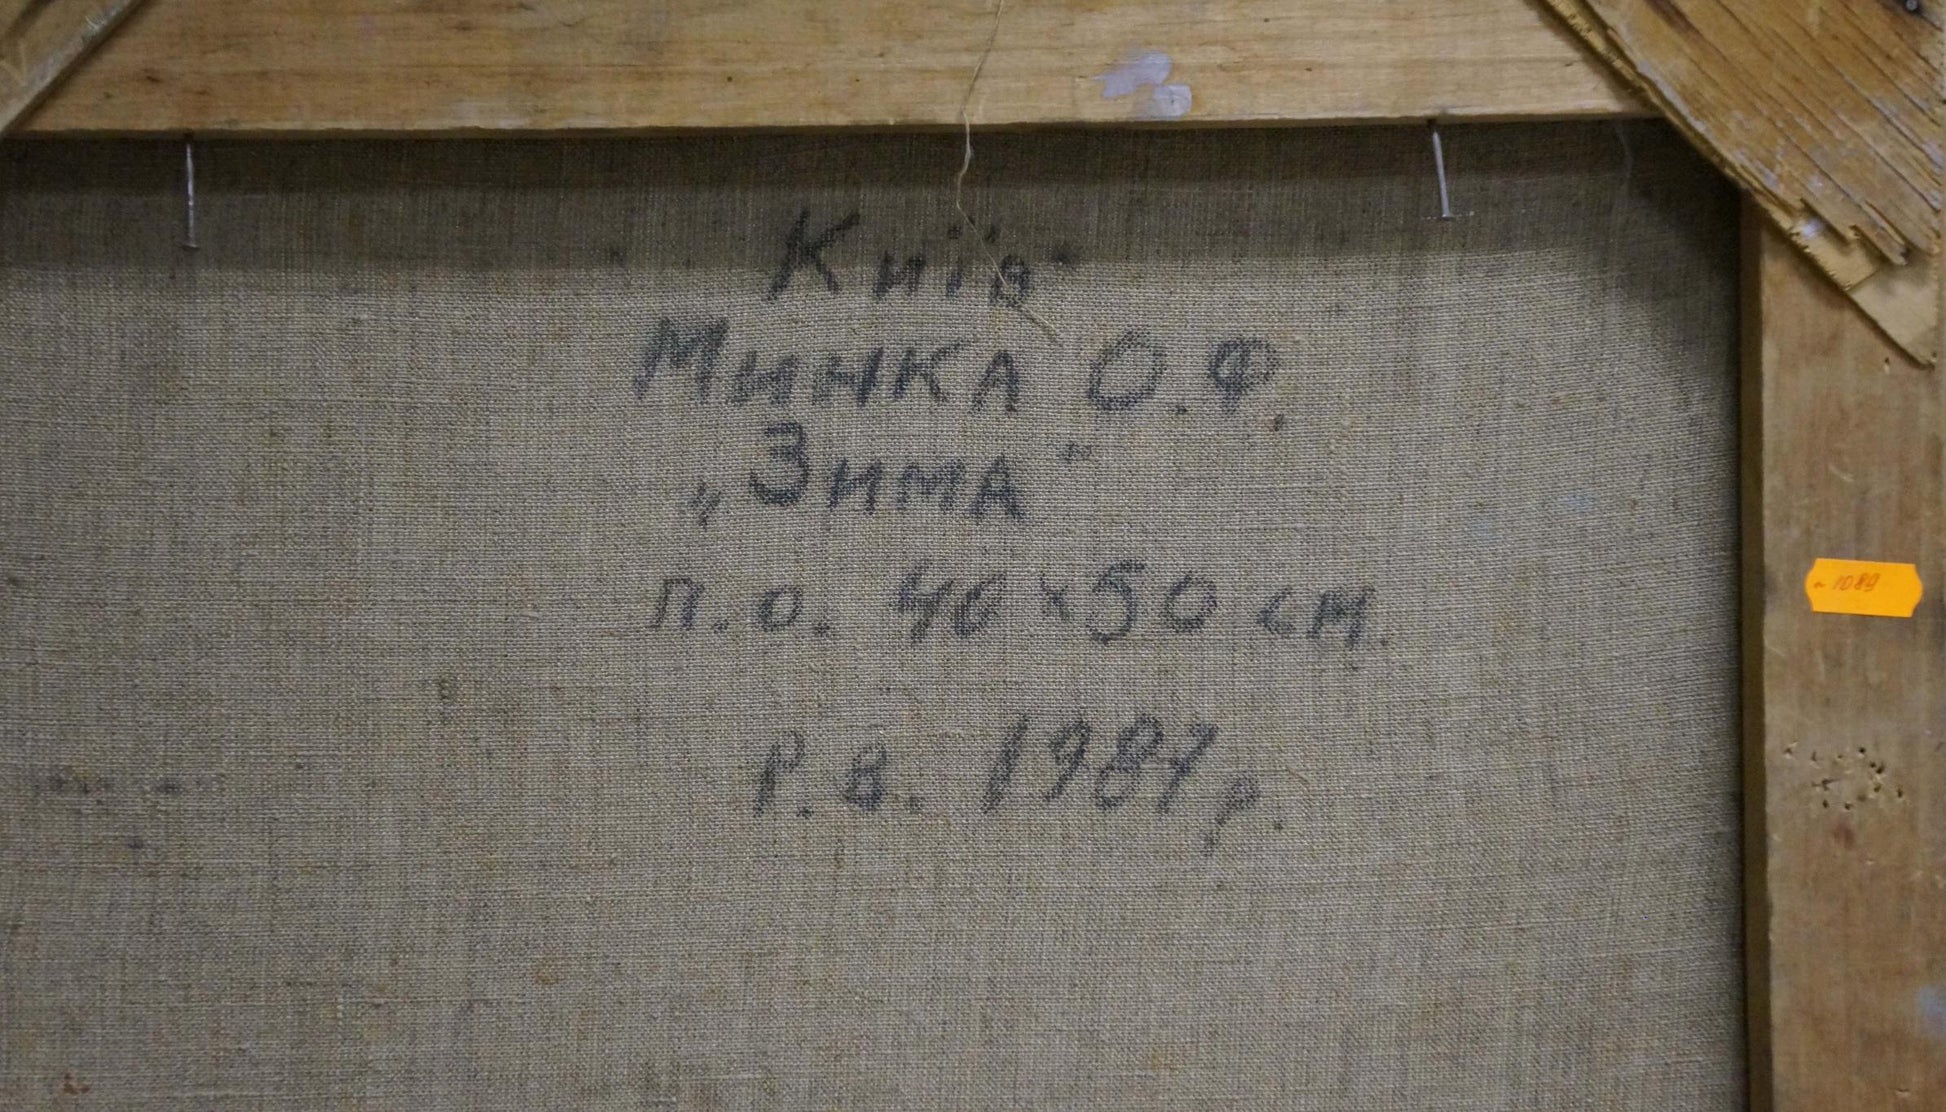 Київ"
Минка О.Ф.
„Зима"
п.о. 40x50 см.
Р.В. 1987р.
1089